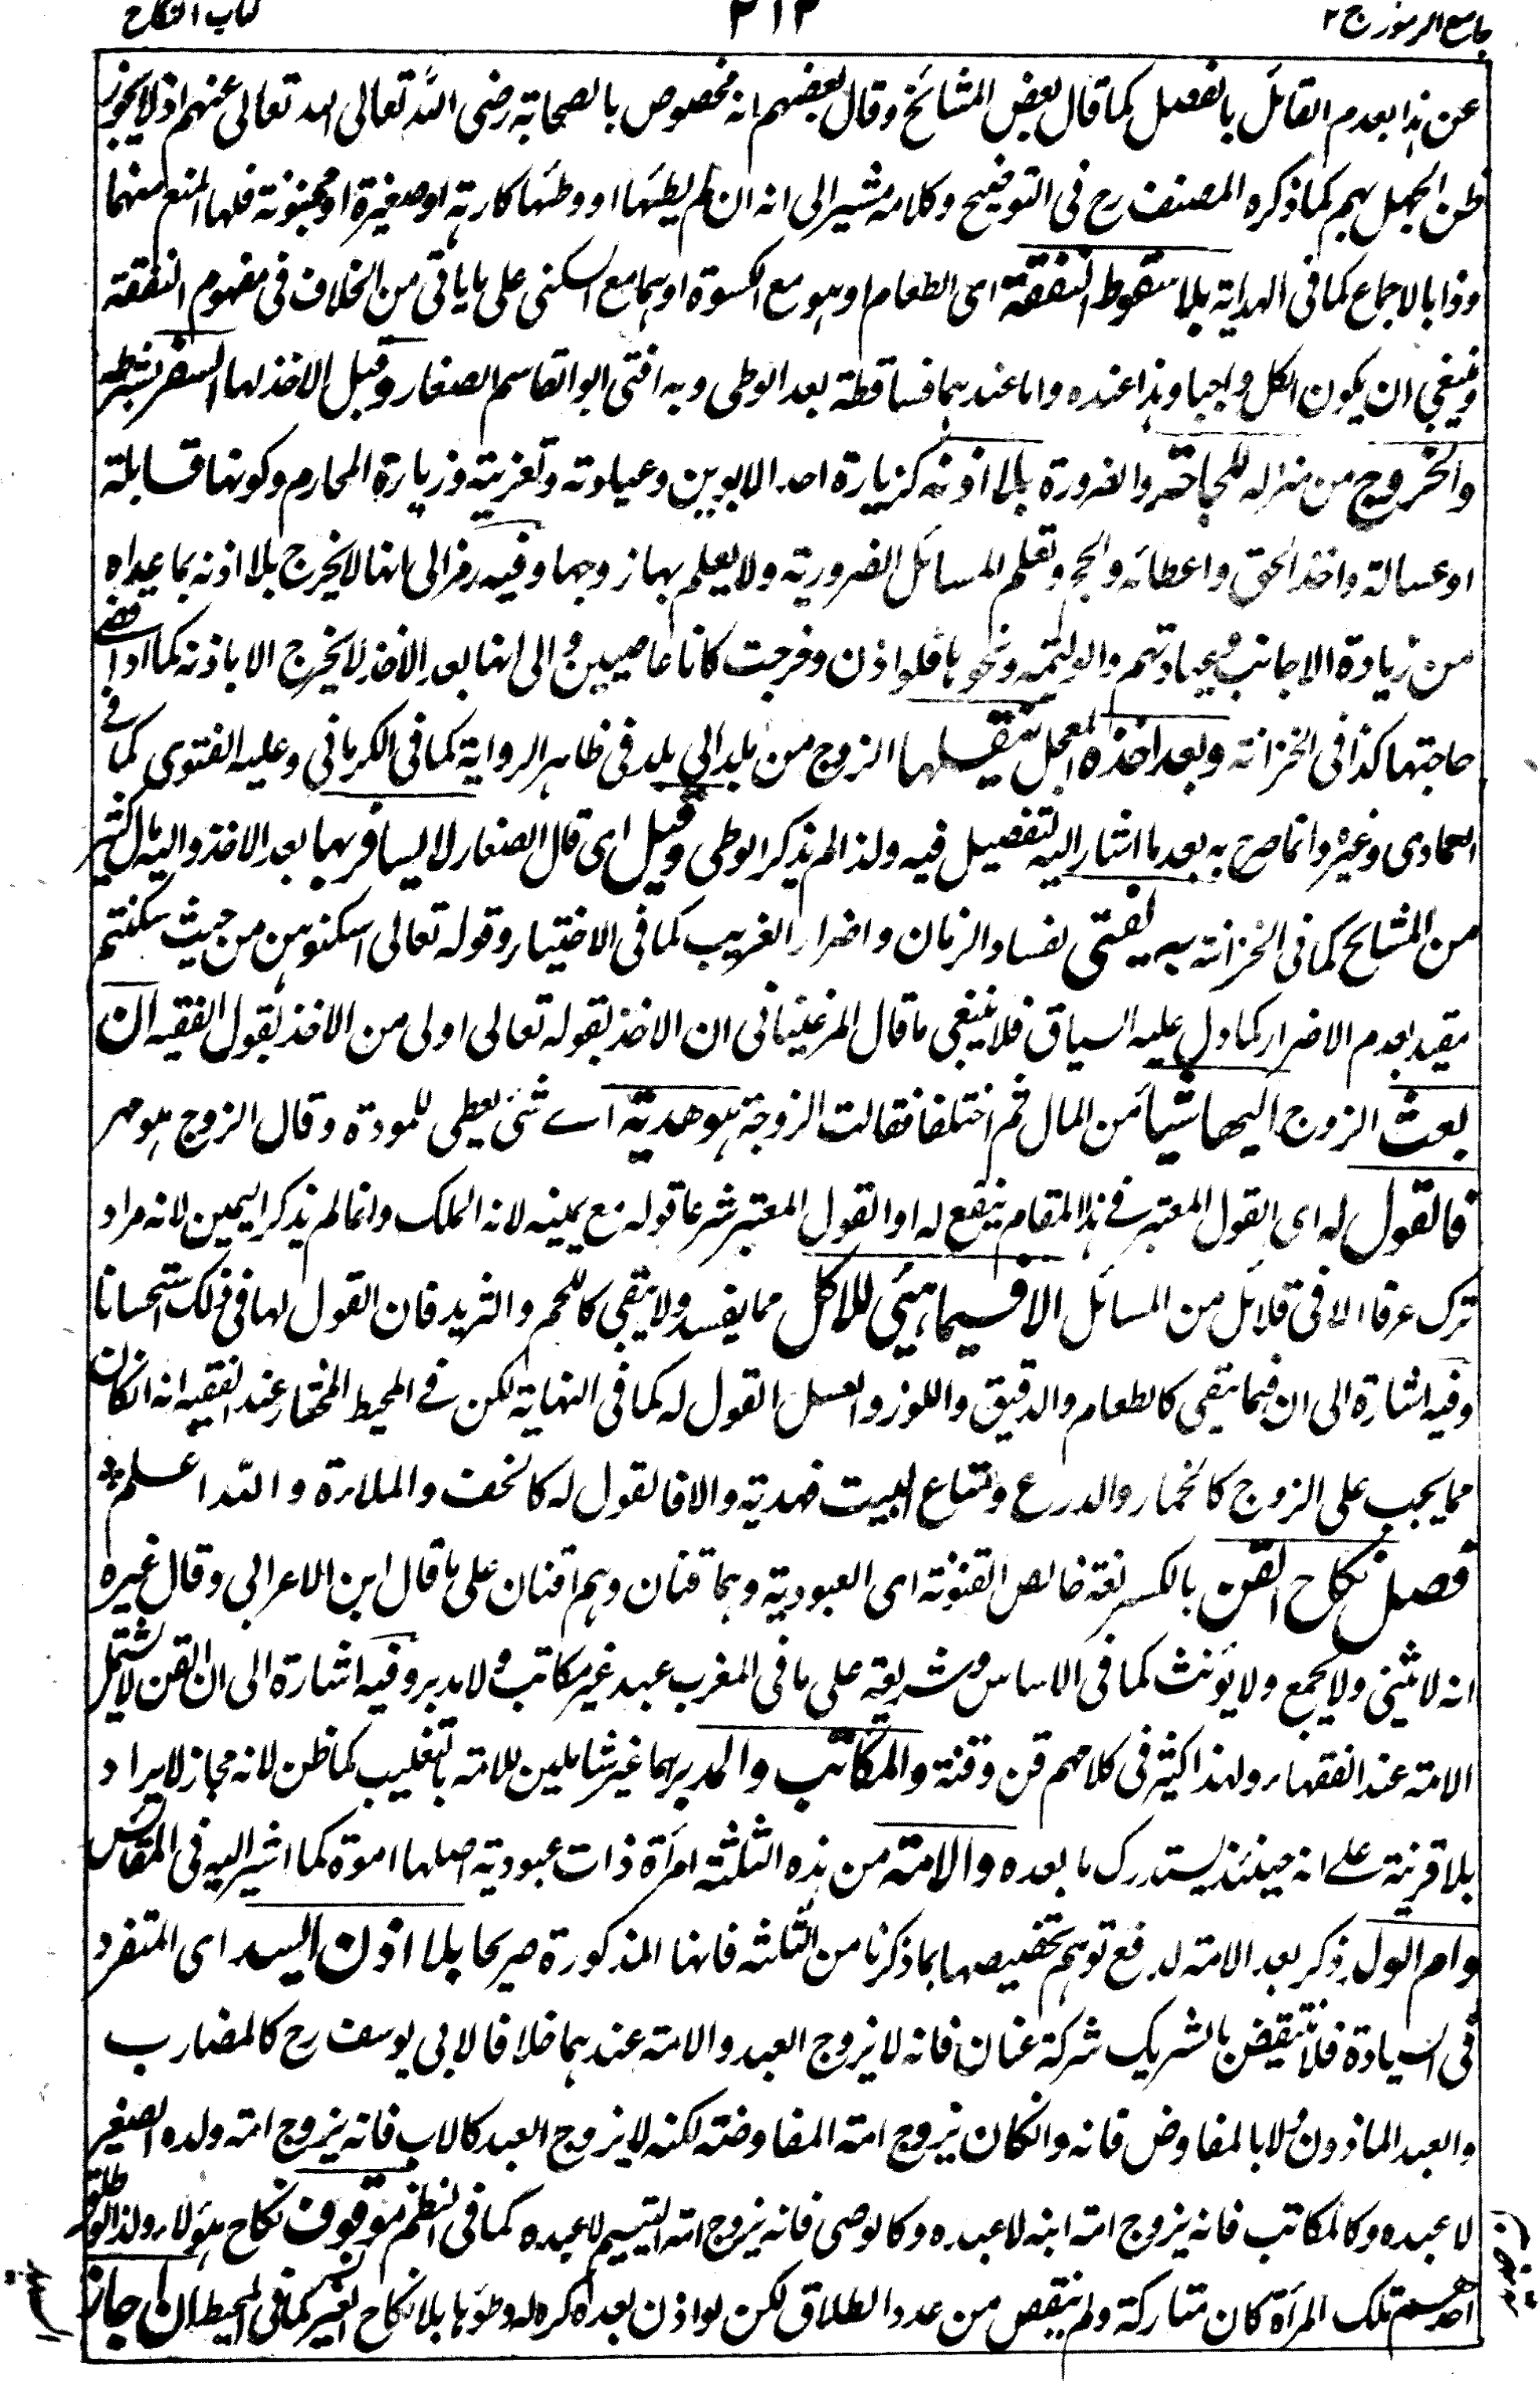 جامع الرموز ج ٢
٣١٢
كتاب النكاح
عن هذا بعدم القائل بالفصل كما قال بعض المشائخ وقال بعضهم انه مخصوص بالصحابة رضى الله تعالى عنهم اذ لا يجوز
ظن الجهل بهم كما ذكره المصنف رح فى التوضيح وكلامه مشير الى انه ان لم يطئها او وطئها كارهة او صغيرة او مجنونة فلها المنع منهما
وذا بالاجماع كما فى الهداية بلا سقوط النفقة اى الطعام او هو مع الكسوة او هما مع السكنى على ما ياتى من الخلاف فى مفهوم النفقة
وينبغى ان يكون الكل واجبا وهذا عنده واما عندهما فساقطة بعد الوطى وبه افتى ابو القاسم الصفار وقبل الاخذ لها السفر بشرطه
والخروج من منزله للحاجة والضرورة بلا اذنه كزيارة احد الابوين وعيادته وتعزيته وزيارة المحارم وكونها قابلة
او غسالة واخذ الحق واعطائه والحج وتعلم المسائل الضرورية ولا يعلم بها زوجها وفيه رمز الى انها لا يخرج بلا اذنه بما عداه
من زيادة الاجانب وعيادتهم والوليمة ونحوها فلو اذن وخرجت كانا عاصيين والى انها بعد الاخذ لا يخرج الا باذنه كما اذا قضى
حاجتها كذا فى الخزانة وبعد اخذه المعجل ينقلها الزوج من بلد الى بلد فى ظاهر الرواية كما فى الكرمانى وعليه الفتوى كما فى
العمادى وغيره وانما صرح به بعد ما اشار اليه لتفصيل فيه ولذا لم يذكر الوطى وقيل اى قال الصفار لا يسافر بها بعد الاخذ واليه مال كثير
من المشايخ كما فى الخزانة به يفتى لفساد الزمان واضرار الغريب كما فى الاختيار وقوله تعالى اسكنوهن من حيث سكنتم
مقيد بعدم الاضرار كما دل عليه السياق فلا ينبغى ما قال المرغينانى ان الاخذ بقوله تعالى اولى من الاخذ بقول الفقيه ان
بعث الزوج اليها شيأ من المال ثم اختلفا فقالت الزوجة هو هدية اے شئ يعطى للمودة وقال الزوج هو مهر
فالقول له اى القول المعتبر فے هذا المقام ينفع له او القول المعتبر شرعا قوله مع يمينه لانه الملك وانما لم يذكر اليمين لانه مراد
ترك عرفا الا فى قلائل من المسائل الا فيما هيئ للاكل مما يفسد ولا يبقى كاللحم والثريد فان القول لها فى ذلك استحسانا
وفيه اشارة الى ان فيما يبقى كالطعام والدقيق واللوز والعسل القول له كما فى النهاية لكن فے المحيط المختار عند الفقيه انه انكان
مما يجب على الزوج كالخمار والدرع ومتاع البيت فهدية والا فالقول له كالخف والملاءة والله اعلم *
فصل نكاح القن بالكسر لغة خالص القنونة اى العبودية وهما قنان وهم اقنان على ما قال ابن الاعرابى وقال غيره
انه لا يثنى ولا يجمع ولا يؤنث كما فى الاساس وشريعة على ما فى المغرب عبد غير مكاتب ولا مدبر وفيه اشارة الى ان القن لا يشتمل
الامة عند الفقهاء ولهذا كثير فى كلامهم قن وقنة والمكاتب والمدبر هما غير شاملين للامة بالتغليب كما ظن لانه مجاز لا يراد
بلا قرينة على انه حينئذ يستدرك ما بعده والامة من هذه الثلثة امرأة ذات عبودية اصلها اموة كما اشير اليه فى المقائس
وام الولد ذكر بعد الامة لدفع توهم تخصيصها بما ذكرنا من الثلثة فانها المذكورة صريحا بلا اذن السيد اى المتفرد
فى السيادة فلا ينتقض بالشريك شركة عنان فانه لا يزوج العبد والامة عندهما خلافا لابى يوسف رح كالمضارب
والعبد الماذون ولا بالمفاوض فانه وانكان يزوج امة المفاوضة لكنه لا يزوج العبد كالاب فانه يزوج امة ولده الصغير
لا عبده وكالمكاتب فانه يزوج امة ابنه لا عبده وكالوصى فانه يزوج امة اليتيم لا عبده كما فى النظم موقوف نكاح هؤلاء ولذا لو طلق
احدهم تلك المرأة كان متاركة ولم ينقص من عدد الطلاق لكن لو اذن بعده كره له وطؤها بلا نكاح الغير كما فى المحيط ان اجاز